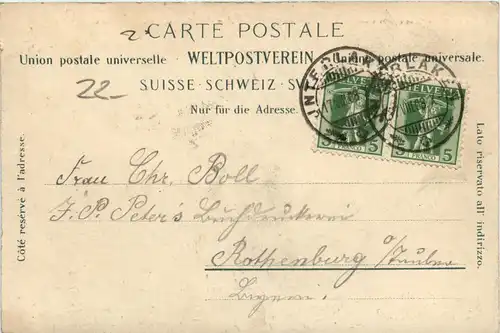 CARTE POSTALE
Union postale universelle WELTPOSTVEREIN Unione postale universale.
SUISSE·SCHWEIZ·SV
Nur für die Adresse.
22-
HELVETIA
5 FRANCO 5
5 FRANCO 5
Côté réservé à l'adresse.
Lato riservato all' indirizzo.
Frau Chr. Boll
J. P. Peter's Buchdruckerei
Rothenburg o/Tauber
Bayern.